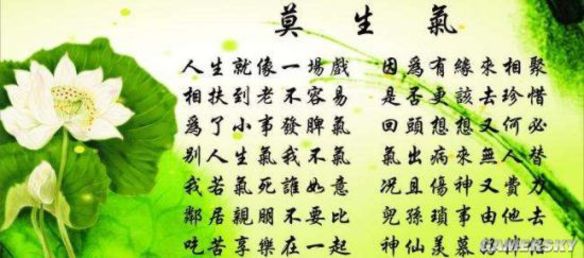 莫生氣
人生就像一場戲 因爲有緣來相聚
相扶到老不容易 是否更該去珍惜
爲了小事發脾氣 回頭想想又何必
别人生氣我不氣 氣出病來無人替
我若氣死誰如意 况且傷神又費力
鄰居親朋不要比 兒孫瑣事由他去
吃苦享樂在一起 神仙羡慕
GAMERSKY